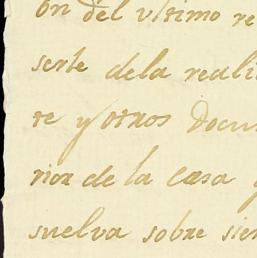 on del ultimo re
serle dela reali
te y otros Docu
rior de la casa
suelva sobre sie